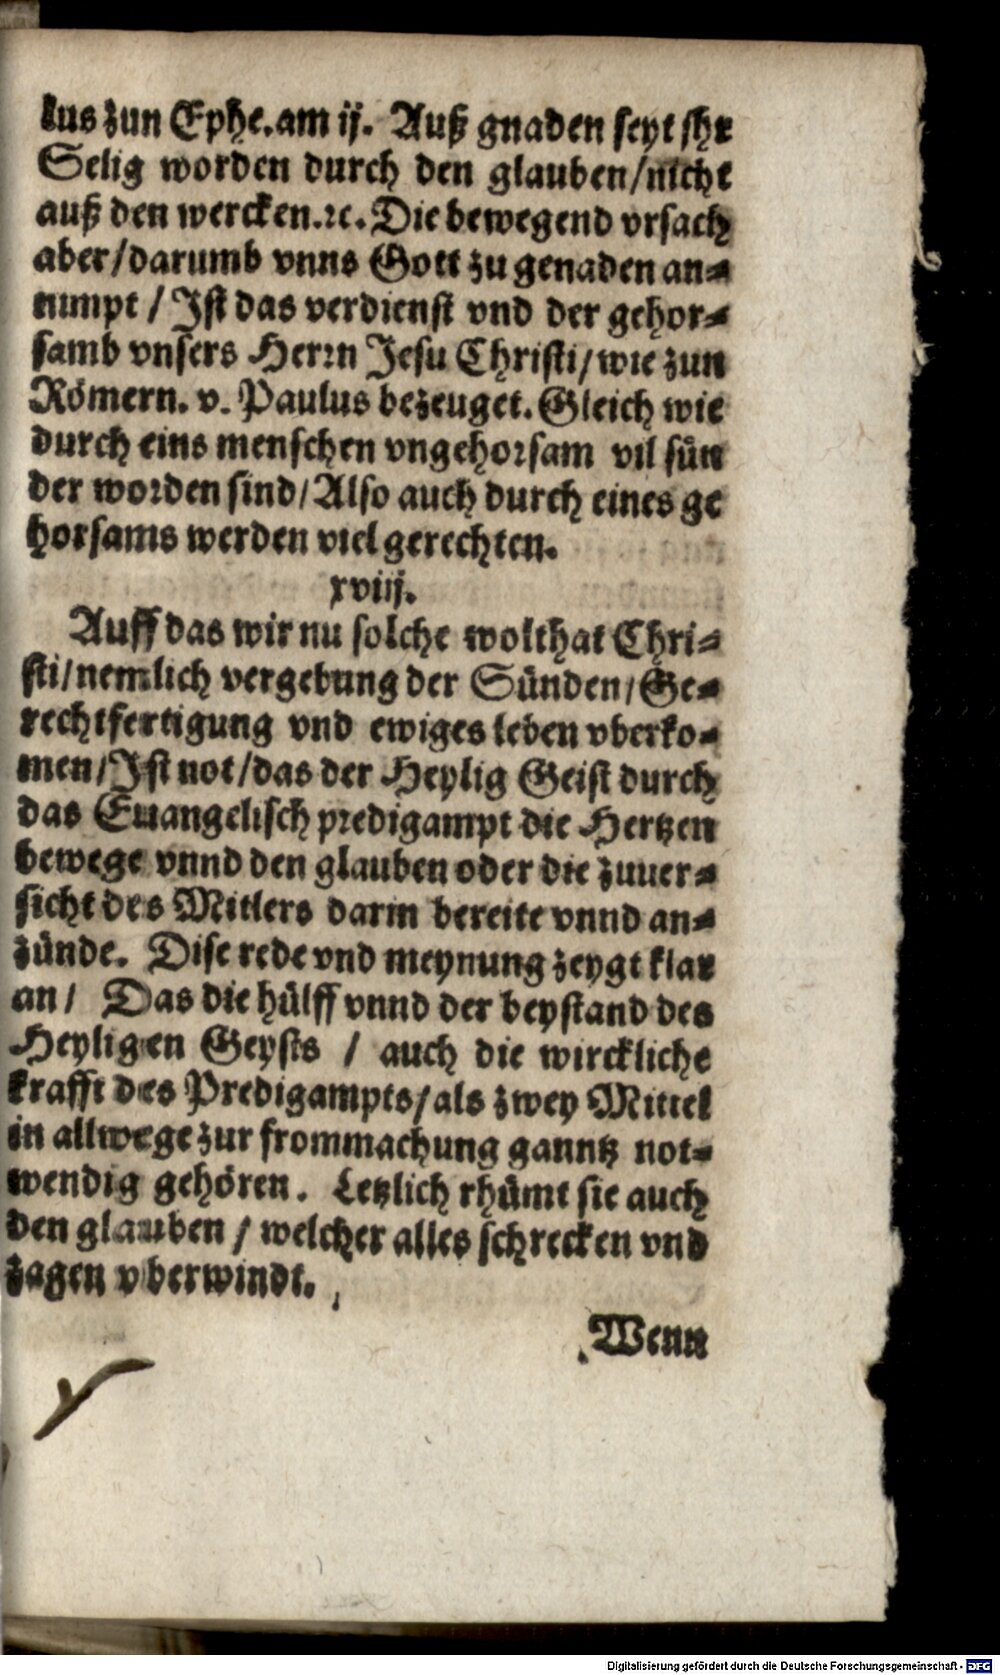 lus zun Ephe. am ij. Auß gnaden seyt jhr
Selig worden durch den glauben/nicht
auß den wercken.ꝛc. Die bewegend vrsach
aber/darumb vnns Gott zu genaden an⸗
nimpt / Ist das verdienst vnd der gehor⸗
samb vnsers Herrn Jesu Christi/wie zun
Römern. v. Paulus bezeuget. Gleich wie
durch eins menschen vngehorsam vil sün
der worden sind/Also auch durch eines ge
horsams werden viel gerechten.
xviij.
Auff das wir nu solche wolthat Chri⸗
sti/nemlich vergebung der Sünden/Ge⸗
rechtfertigung vnd ewiges leben vberko⸗
men/Ist not/das der Heylig Geist durch
das Euangelisch predigampt die Hertzen
bewege vnnd den glauben oder die zuuer⸗
sicht des Mitlers darin bereite vnnd an⸗
zünde. Dise rede vnd meynung zeygt klar
an/ Das die hülff vnnd der beystand des
Heyligen Geysts / auch die wirckliche
krafft des Predigampts/als zwey Mittel
in allwege zur frommachung ganntz not⸗
wendig gehören. Letzlich rhümt sie auch
den glauben / welcher alles schrecken vnd
zagen vberwindt.
Wenn
Digitalisierung gefördert durch die Deutsche Forschungsgemeinschaft - DFG